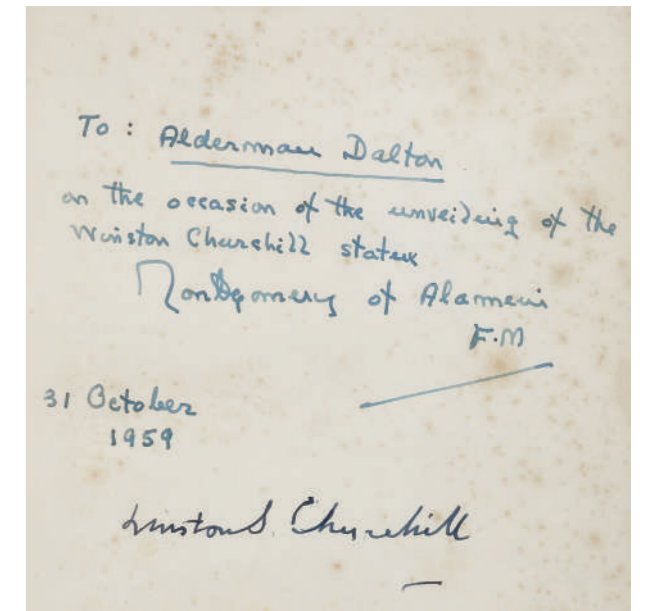 To : Alderman Dalton
on the occasion of the unveiling of the
Winston Churchill statue
Montgomery of Alamein
F.M
31 October
1959
Winston S. Churchill